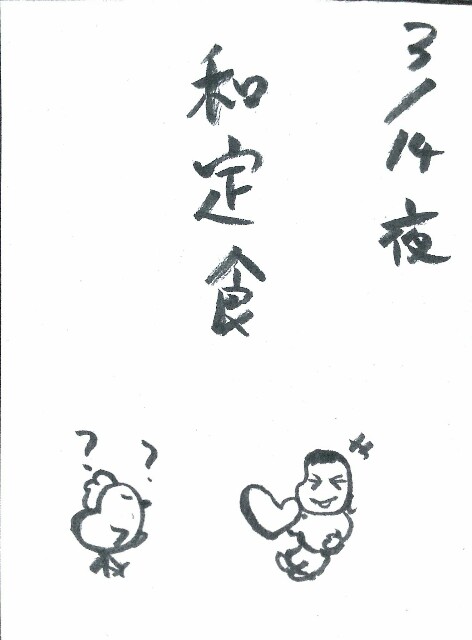 3/14 夜
和定食
? ?